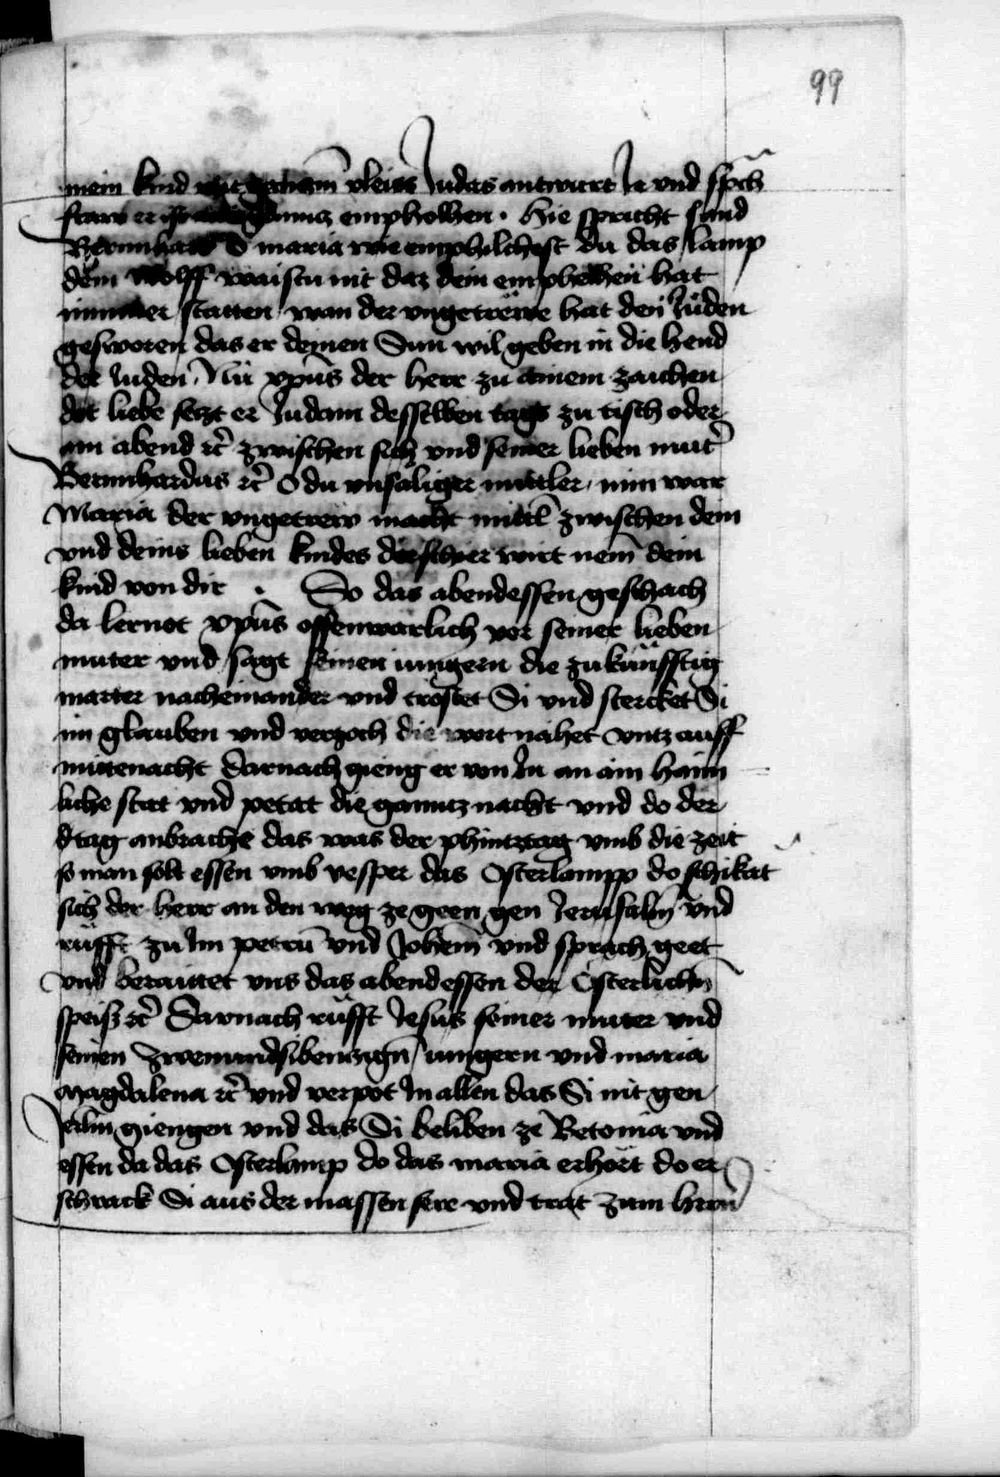 99
mein kind mit vleiss Judas antwurt Je und sp̄ch
fraw er ist gannz empholhen · Hie spricht sand
Bernnhard O maria wie emphilchest du das lamp
dem Wolff waistu nit daz dein emphelhen hat
nimmer statten wan der vngetrewe hat den Juden
gesworen das er deinen Sun wil geben in die hend
der Juden Nu xp̄us der herr zu ainem zaichen
der liebe setzt er Judam desselben tags zu tisch oder
am abend ꝛc̄ zwischen sich vnd seiner lieben mut̄
Bernnhardus ꝛc̄ O du vnsaliger mittler nim war
Maria der vngetrew macht mittl zwischen dein
vnd deins lieben kindes der schier wirt nem̄ dein
kind von dir · So das abendessen geschach
da lernet xp̄us offenwarlich vor seiner lieben
muter vnd sagt seinen iungern die zukunfftig
marter nacheinander vnd tröstet Si vnd stercket Si
im glauben vnd verzoch die wort nahet vntz auff
mittenacht darnach gieng er von In an ain haim
liche stat vnd petat die ganntz nacht vnd do der
tag anbrache das was der phintztag vmb die zeit
so man solt essen vmb vesper das Osterlampp do schikat
sich der herr an den weg ze geen gen Jerusalm̄ vnd
rüfft zu Im petrū vnd Johem̄ vnd sprach geet
vnd beraittet vns das abendessen der Osterlichn̄
speisz ꝛc̄ Darnach rüfft Jesus seiner muter vnd
seinen zwenundsibenzign̄ iungern vnd maria
magdalena ꝛc̄ vnd verpot In allen das Si nit gen
Jerlm giengen vnd das Si beliben ze Betonia vnd
essen da das Osterlamp do das maria erhört do er
schrack Si aus der massen sere vnd trat zum herrn̄